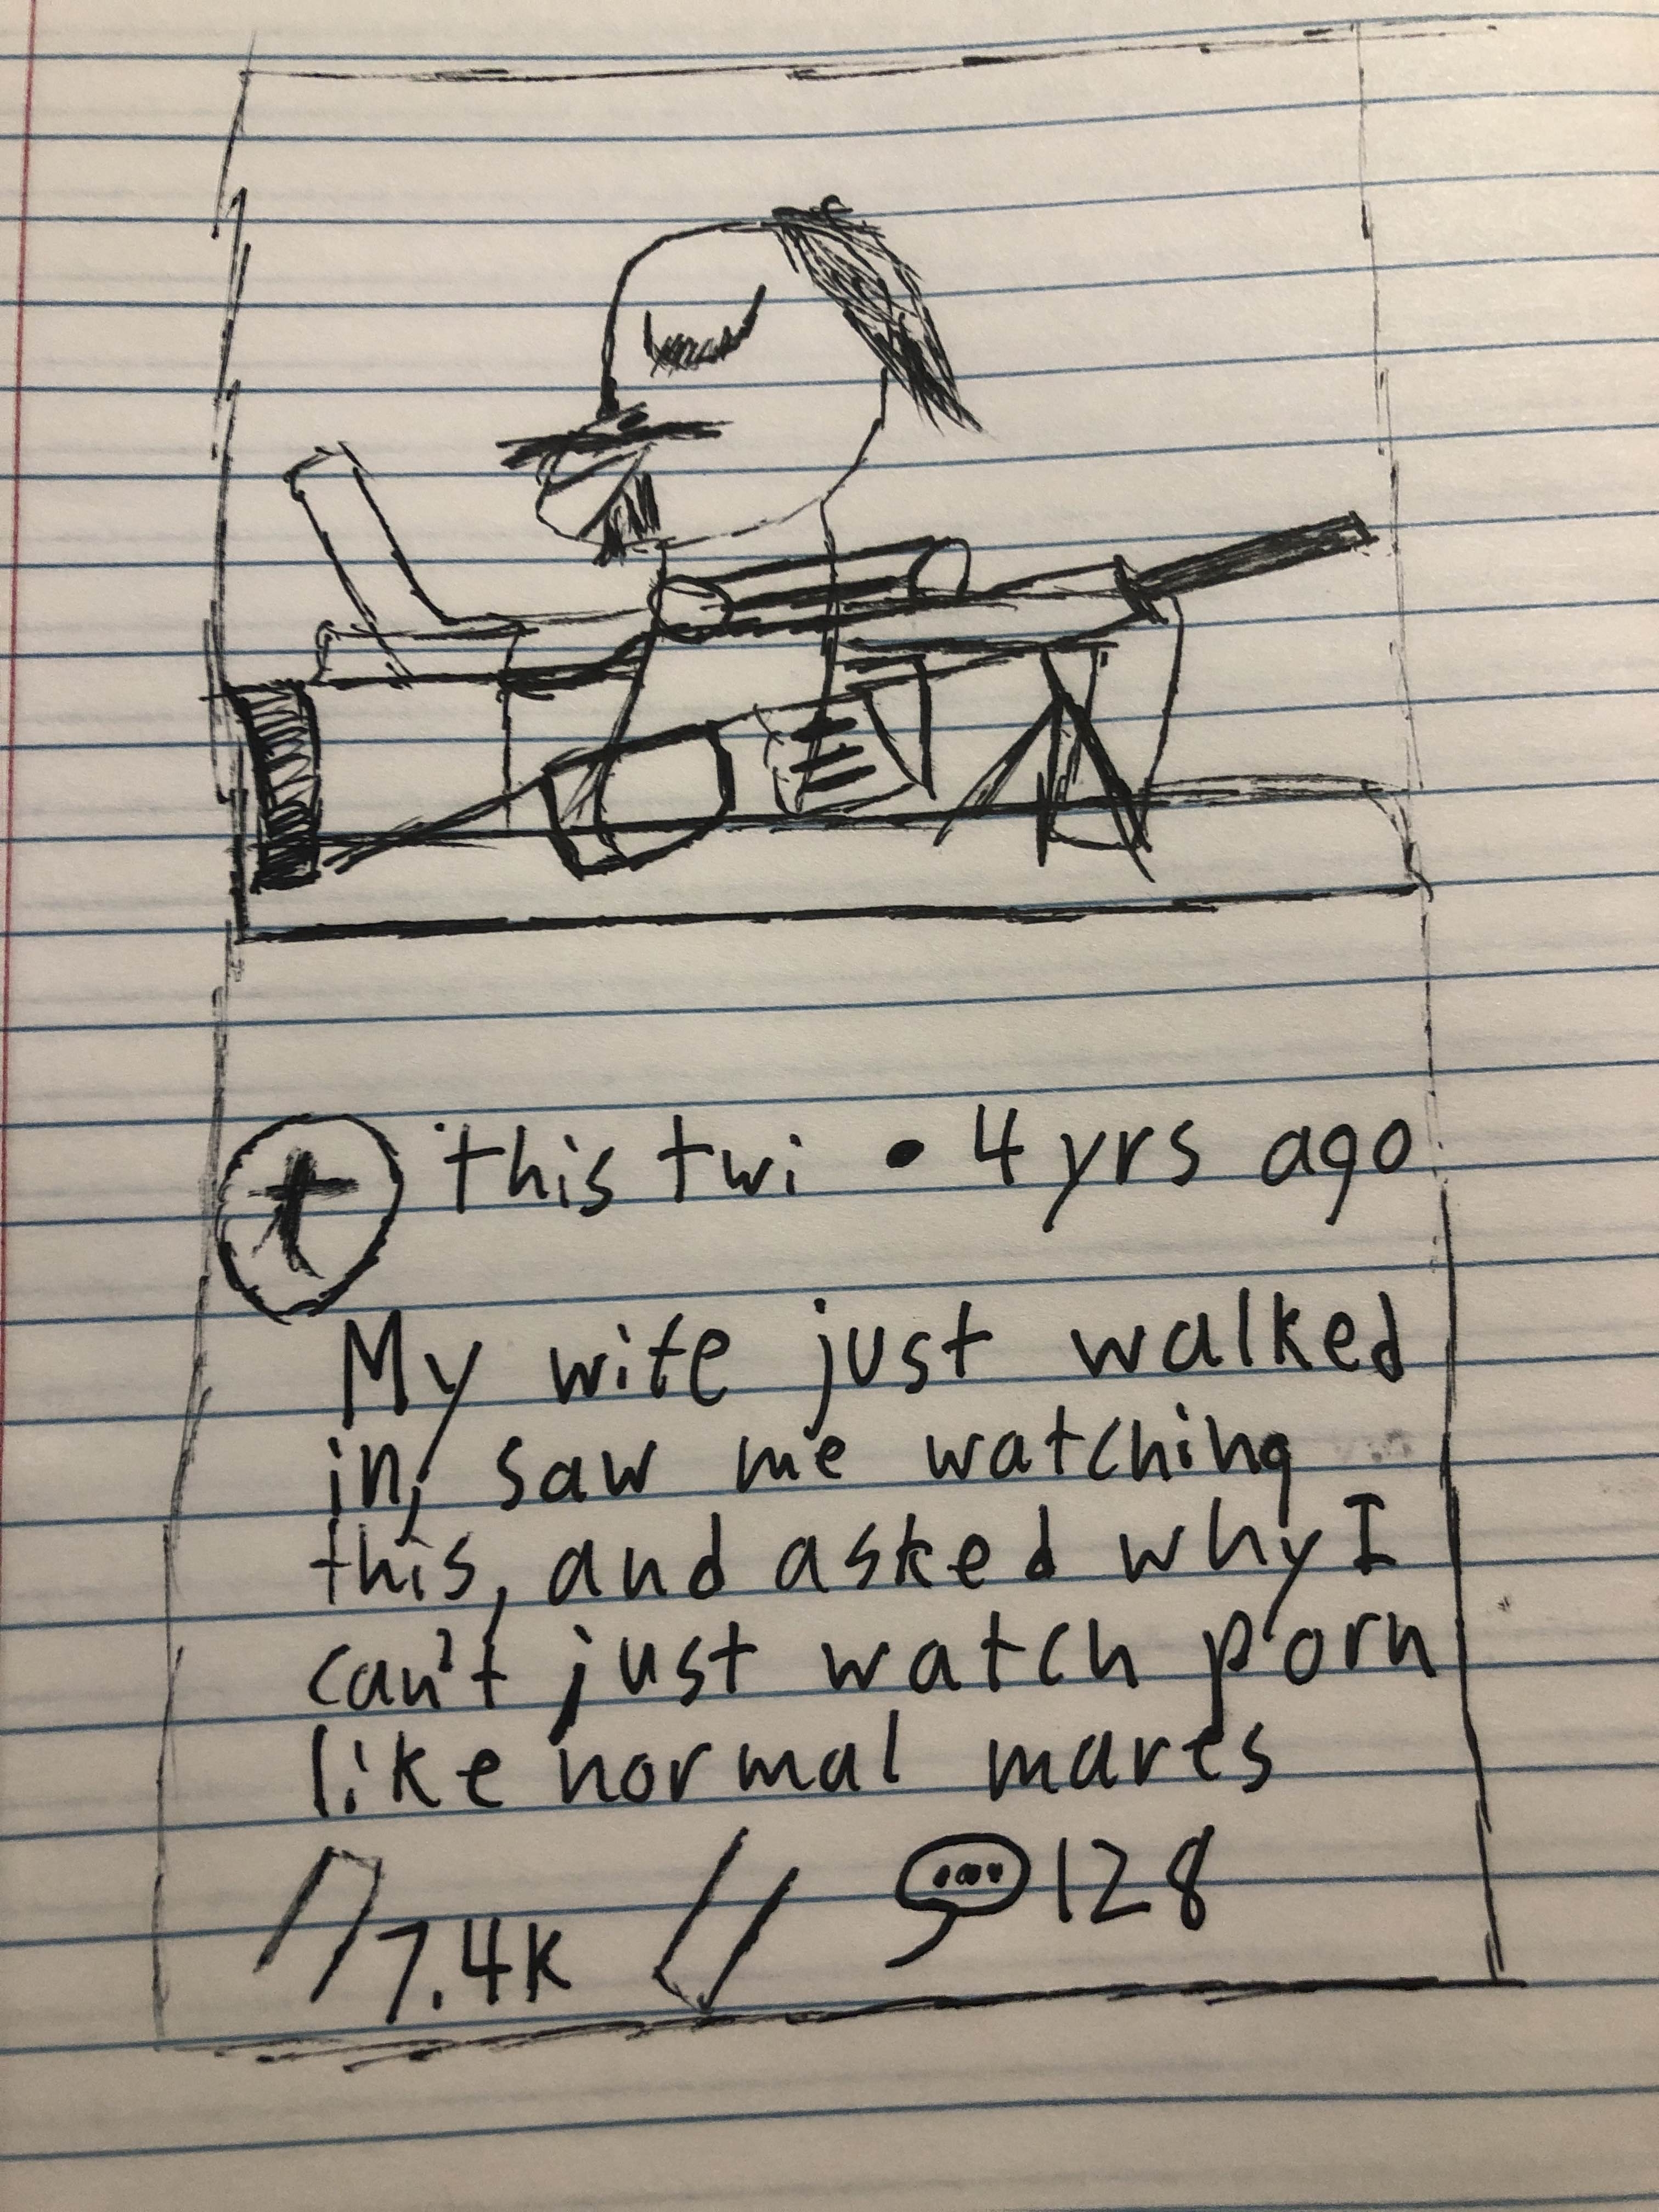 t this twi • 4 yrs ago
My wife just walked
in, saw me watching
this, and asked why I
can't just watch porn
like normal mares
7.4K 128